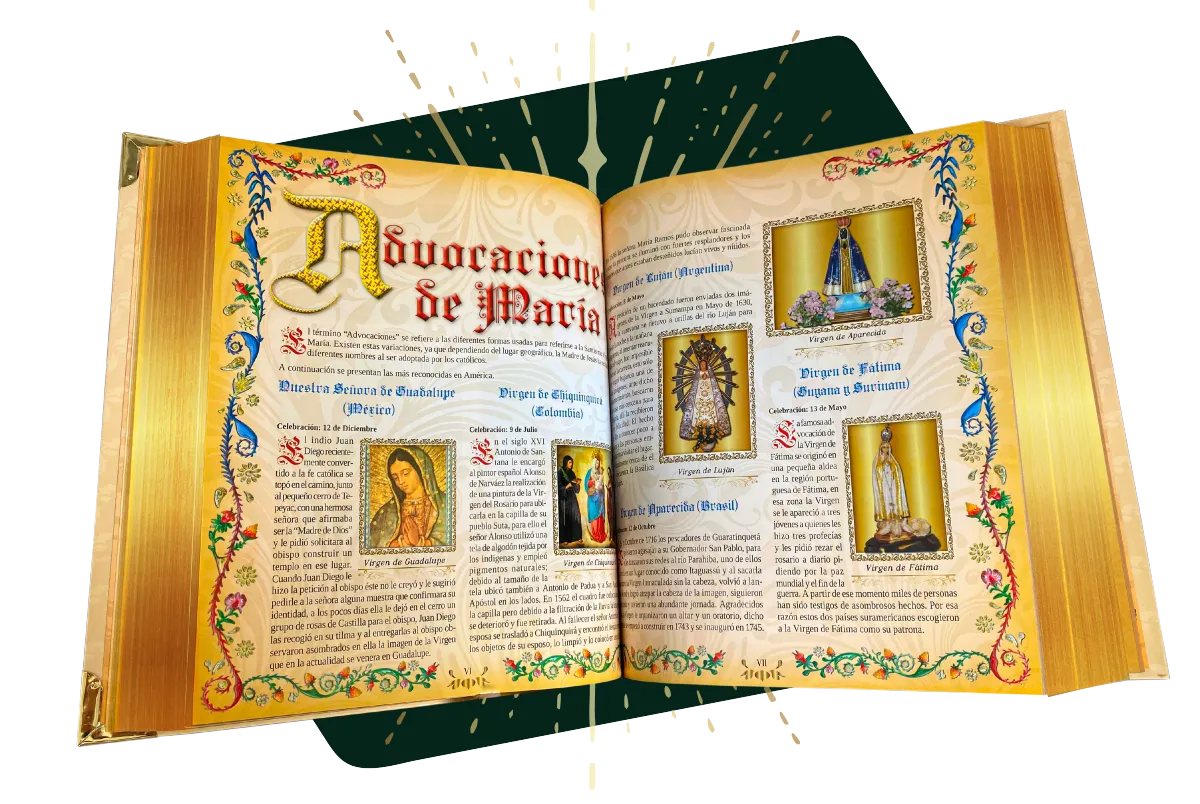 Advocaciones
de María
El término “Advocaciones” se refiere a las diferentes formas usadas para referirse a la
María. Existen estas variaciones, ya que dependiendo del lugar geográfico, la Madre de
diferentes nombres al ser adoptada por los católicos.
A continuación se presentan las más reconocidas en América.
Nuestra Señora de Guadalupe
(México)
Celebración: 12 de Diciembre
El Indio Juan
Diego reciente-
mente conver-
tido a la fe católica se
topó en el camino, junto
al pequeño cerro de Te-
peyac, con una hermosa
señora que afirmaba
ser la “Madre de Dios”
y le pidió solicitara al
obispo construir un
templo en ese lugar.
Cuando Juan Diego le
hizo la petición al obispo éste no le creyó y le sugirió
pedirle a la señora alguna muestra que confirmara su
identidad, a los pocos días ella le dejó en el cerro un
grupo de rosas de Castilla para el obispo, Juan Diego
las recogió en su tilma y al entregarlas al obispo ob-
servaron asombrados en ella la imagen de la Virgen
que en la actualidad se venera en Guadalupe.
Virgen de Guadalupe
Virgen de Chiquinquira
(Colombia)
Celebración: 9 de Julio
En el siglo XVI
Antonio de San-
tana le encargó
al pintor español Alonso
de Narváez la realización
de una pintura de la Vir-
gen del Rosario para ubi-
carla en la capilla de su
pueblo Suta, para ello el
señor Alonso utilizó una
tela de algodón tejida por
los indígenas y empleó
pigmentos naturales;
debido al tamaño de la
tela ubicó también a Antonio de Padua y a San
Apóstol en los lados. En 1562 el cuadro fue
la capilla pero debido a la filtración de la lluvia
se deterioró y fue retirada. Al fallecer el señor
esposa se trasladó a Chiquinquirá y encontró el
los objetos de su esposo, lo limpió y lo
Virgen de
VI
la señora María Ramos pudo observar fascinada
la pintura se iluminó con fuertes resplandores y los
que antes estaban desteñidos lucían vivos y nítidos.
Virgen de Luján (Argentina)
de Mayo
de un hacendado fueron enviadas dos imá-
genes de la Virgen a Sumampa en Mayo de 1630,
la caravana se detuvo a orillas del río Luján para
Virgen de Luján
Virgen de Aparecida (Brasil)
12 de Octubre
de 1716 los pescadores de Guaratinquetá
para agasajar a su Gobernador San Pablo, para
lanzaron sus redes al río Parahiba, uno de ellos
lugar conocido como Itaguassú y al sacarla
Virgen Inmaculada sin la cabeza, volvió a lan-
atrapar la cabeza de la imagen, siguieron
una abundante jornada. Agradecidos
organizaron un altar y un oratorio, dicho
a construir en 1743 y se inauguró en 1745.
Virgen de Aparecida
Virgen de Fátima
(Guyana y Surinam)
Celebración: 13 de Mayo
La famosa ad-
vocación de
la Virgen de
Fátima se originó en
una pequeña aldea
en la región portu-
guesa de Fátima, en
esa zona la Virgen
se le apareció a tres
jóvenes a quienes les
hizo tres profecías
y les pidió rezar el
rosario a diario pi-
diendo por la paz
mundial y el fin de la
guerra. A partir de ese momento miles de personas
han sido testigos de asombrosos hechos. Por esa
razón estos dos países suramericanos escogieron
a la Virgen de Fátima como su patrona.
Virgen de Fátima
VII